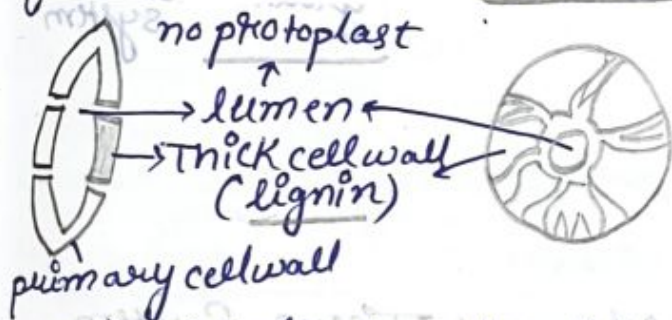 no protoplast
lumen
Thick cell wall
(lignin)
primary cell wall